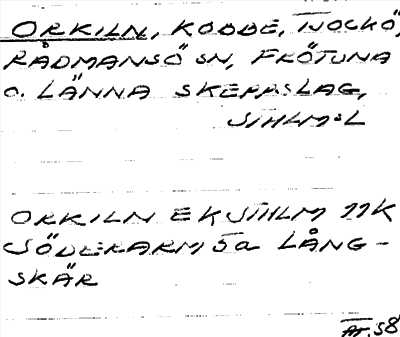 ORKILN, KOBBE, TJOCKÖ,
RÅDMANSÖ SN, FRÖTUNA
O. LÄNNA SKEPPSLAG,
STHLM:L
ORKILN EK STHLM 11K
SÖDERARM 5a LÅNG-
SKÄR
58